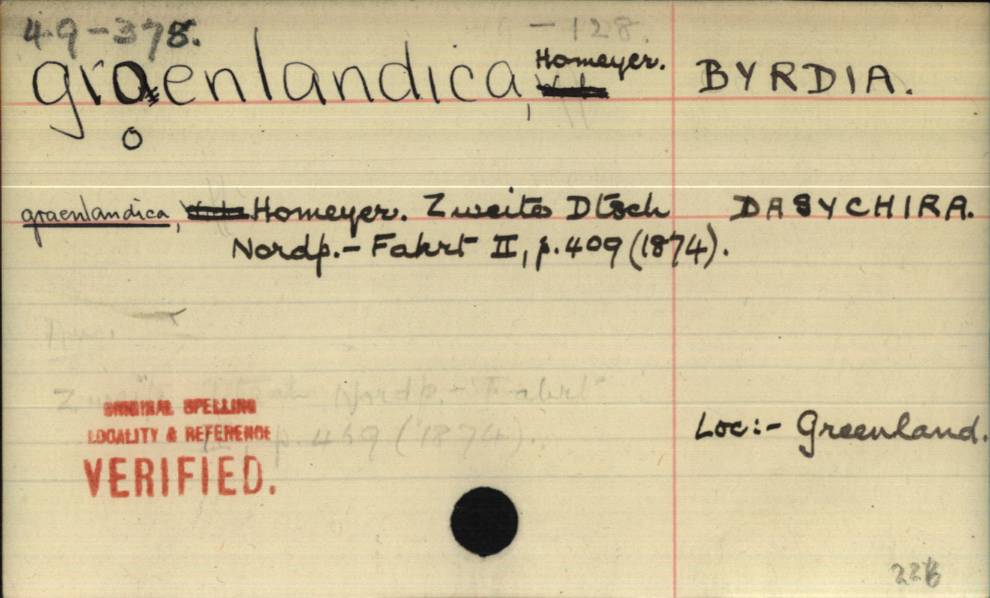 49-378.
-128.
graenlandica, Homeyer. BYRDIA.
o
graenlandica, Homeyer. Zweite Dtsch DASYCHIRA.
Nordp.- Fahrt II, p.409 (1874).
Nordp.- Fahrt
ORIGINAL SPELLING
LOCALITY & REFERENCE
p.469 (1874).
VERIFIED.
Loc:- Greenland.